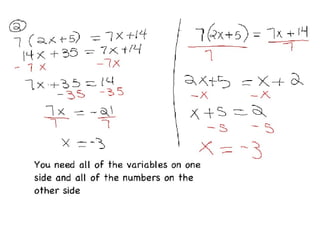 ②
7(2x+5) = 7x+14
14x+35 = 7x+14
-7x -7x
7x+35 = 14
-35 -35
7x = -21
7 7
x = -3
7(2x+5) = 7x+14
7 7
2x+5 = x+2
-x -x
x+5 = 2
-5 -5
x = -3
You need all of the variables on one
side and all of the numbers on the
other side